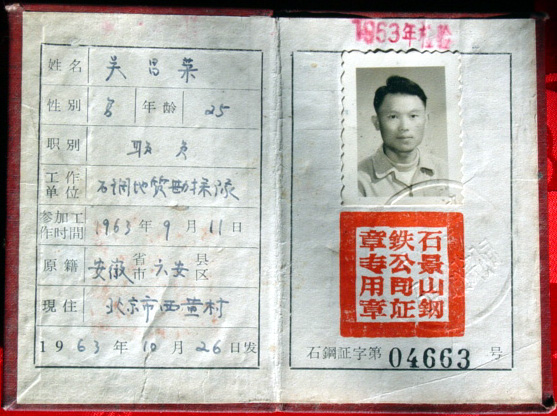 姓名 吴昌荣
性别 男 年龄 25
职别 职员
工作单位 石钢地质勘探队
参加工作时間 1963年9月11日
原籍 安徽省市六安县区
現住 北京市西黄村
1963年10月26日发
1963年检验
石景山鋼
鉄公司証
章专用章
石鋼証字第 04663 号